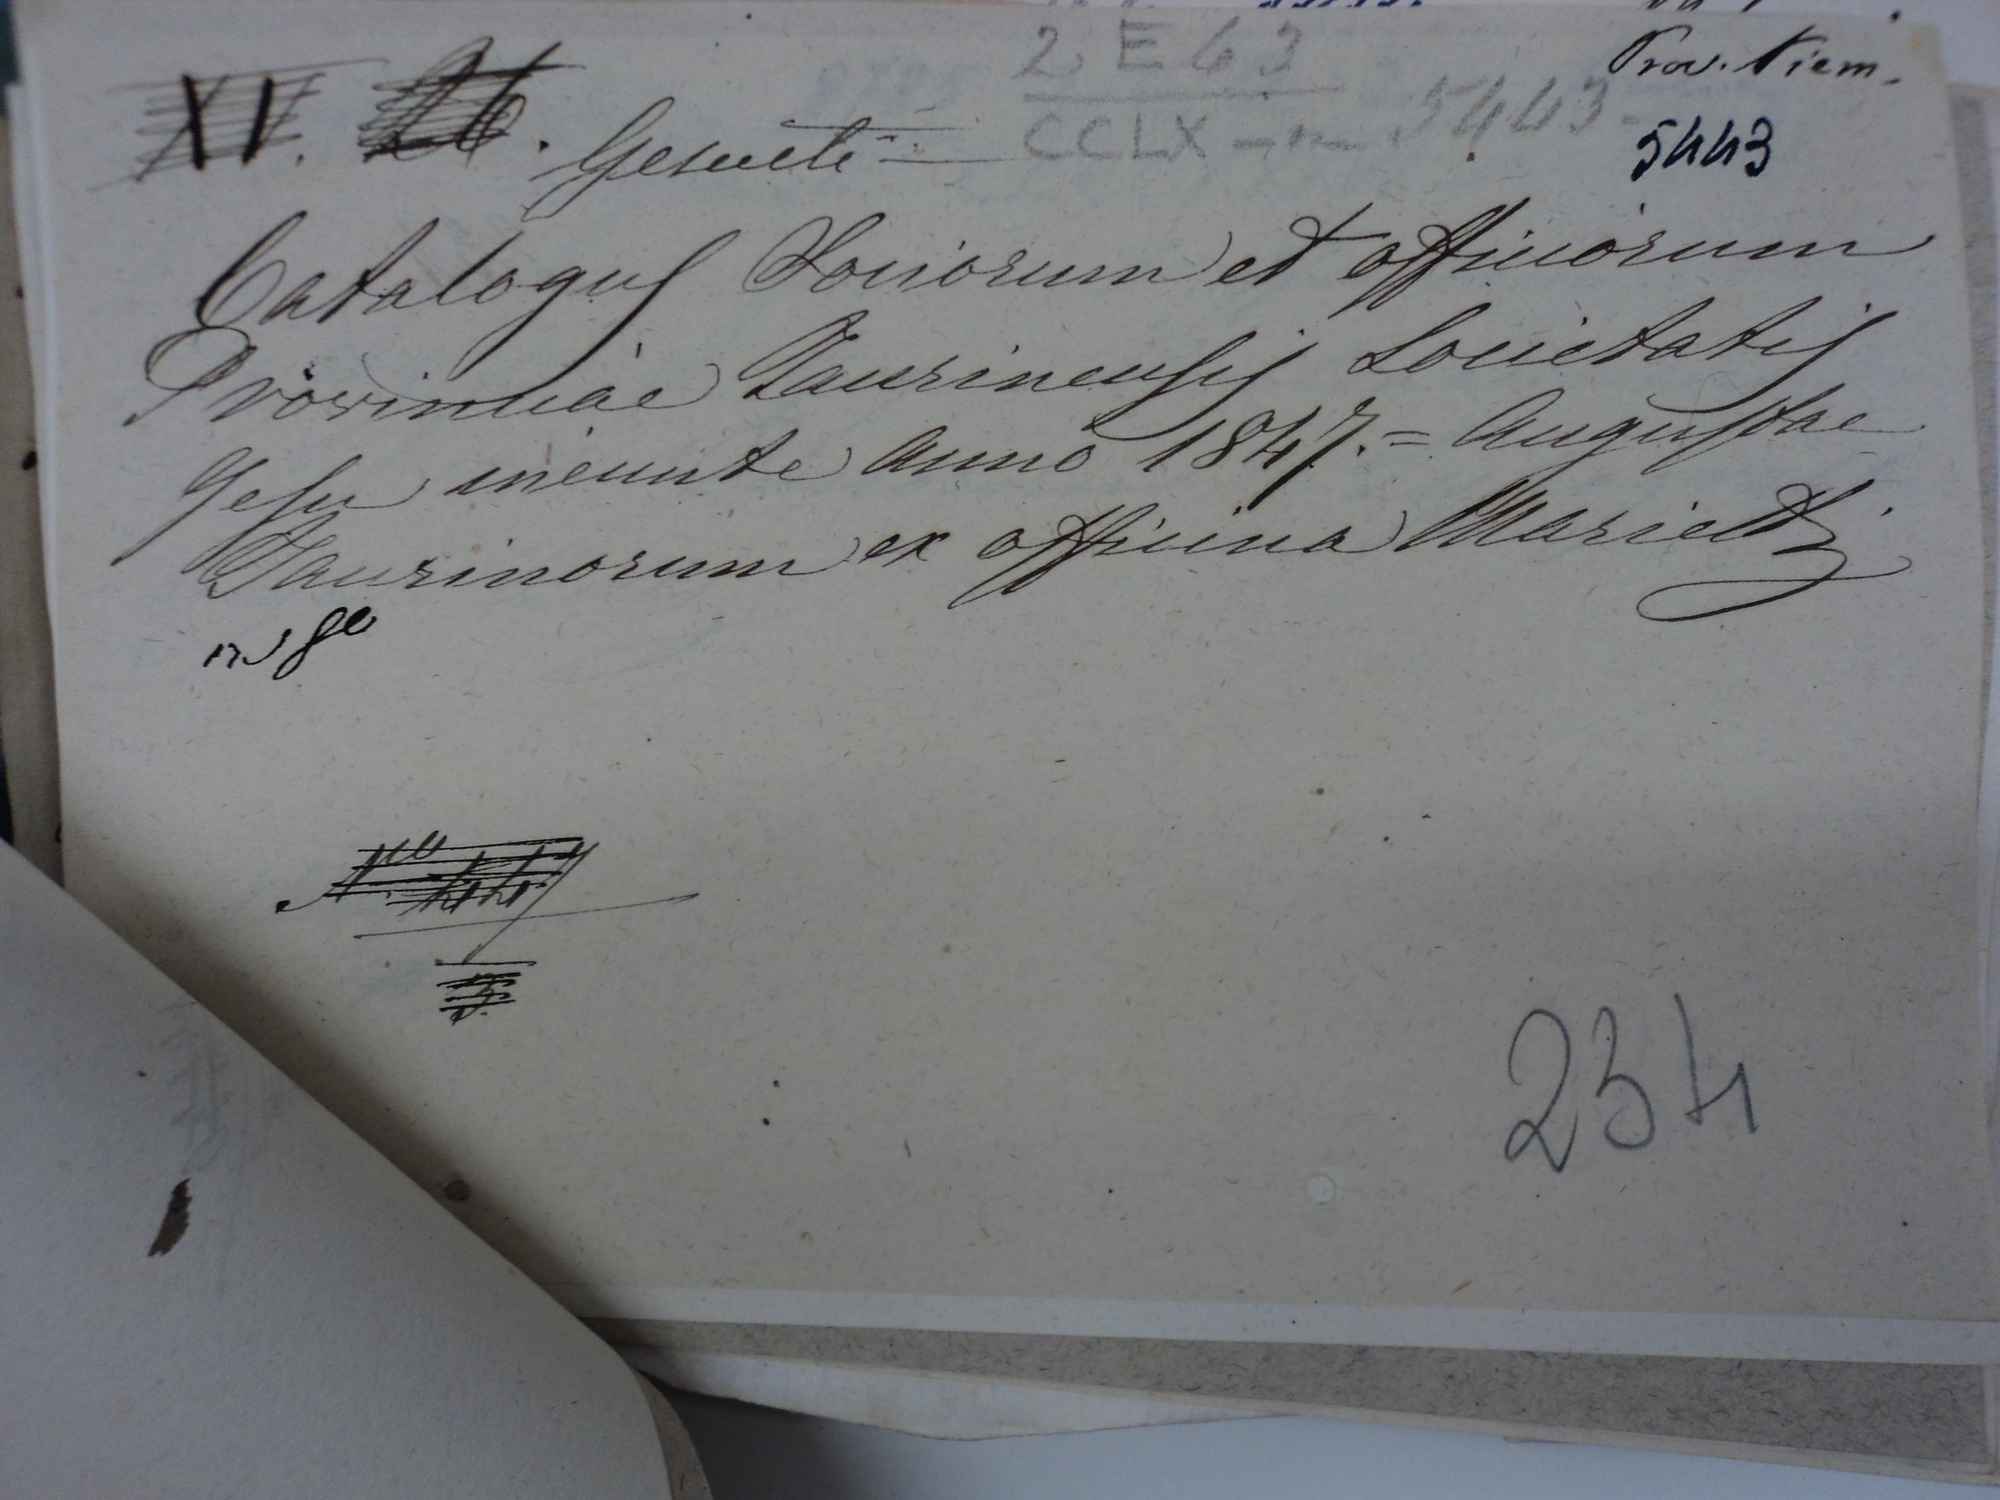 2 E 63
Prov. Piem.
XI. 26. Gesuiti
CCLX 5443
5443
Catalogus Sociorum et officiorum
Provinciae Taurinensis Societatis
Jesu ineunte anno 1847. = Augustae
Taurinorum ex officina Marietti
in 8º
234